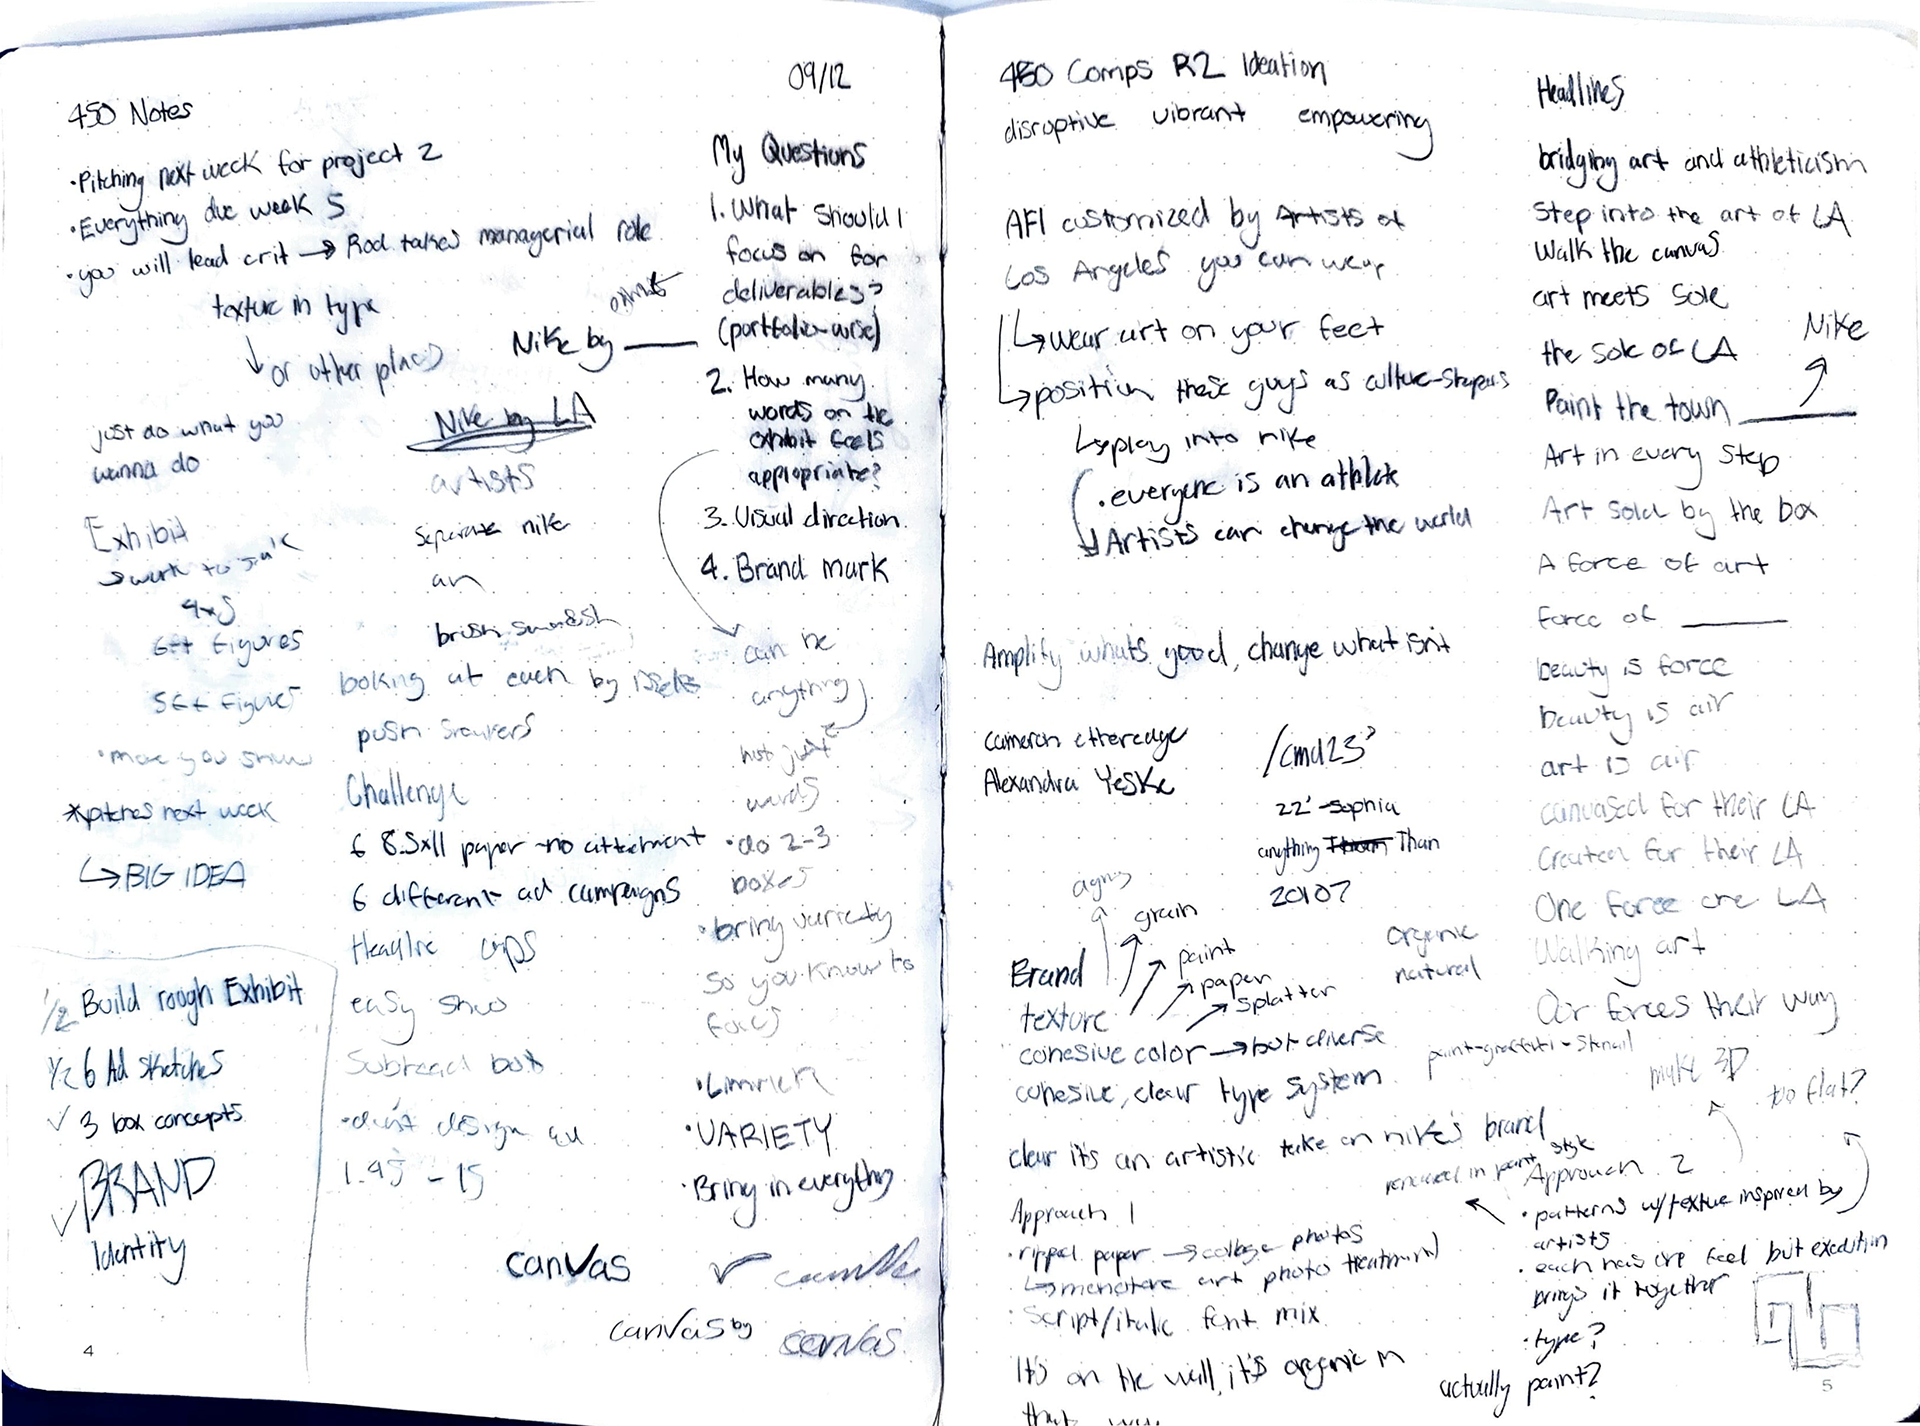 09/12
450 Notes
·Pitching next week for project 2
·Everything due week 5
·you will lead crit → Rod takes managerial role
texture in type
↓ or other places
Nike by ____
just do what you
wanna do
Nike by LA
artists
Separate nike
an
brush swoosh
Exhibit
→ work to
4x5
6ft figures
5ft figures
*pitches next week
↳ BIG IDEA
looking at each by
push
Challenge
6 8.5x11 paper no attachment
6 different ad campaigns
Headline
easy
·don't design
1.45 - 15
1/2 Build rough Exhibit
1/2 6 Ad sketches
✓ 3 box concepts
✓ BRAND
Identity
My Questions
1. What should I
focus on for
deliverables?
(portfolio-wise)
2. How many
words on the
exhibit feels
appropriate?
3. Visual direction
4. Brand mark
can be
anything
not just
words
·do 2-3
boxes
·bring variety
so you know to
·VARIETY
·Bring in everything
canvas
canvas by
canvas
4
450 Comps R2 Ideation
disruptive vibrant empowering
AF1 customized by Artists of
Los Angeles you can wear
↳ wear art on your feet
↳ position these guys as culture-shapers
↳ play into nike
·everyone is an athlete
Artists can change the world
Amplify whats good, change what isn't
Cameron etheredge
Alexandra Yeske
/cmd23
22' Sophia
anything Than
20107
agnes
grain
paint
paper
splatter
organic
natural
Brand
texture
cohesive color → but diverse
cohesive, clear type system
clear it's an artistic take on nike's brand
Approach 1
·ripped paper → collage photos
↳ monotone art photo treatment
·Script/italic font mix
It's on the wall, it's organic in
that way
Headlines
bridging art and athleticism
Step into the art of LA
Walk the canvas
art meets sole
the sole of LA
Nike
Paint the town ____
Art in every step
Art sold by the box
A force of art
force of ____
beauty is force
beauty is air
art is air
canvased for their LA
Created for their LA
One force one LA
Walking art
Air forces their way
paint-graffiti-stencil
make 3D
too flat?
rendered in paint style
Approach 2
·patterns w/texture inspired by
artists
·each has one feel but execution
brings it together
·type?
actually paint?
5